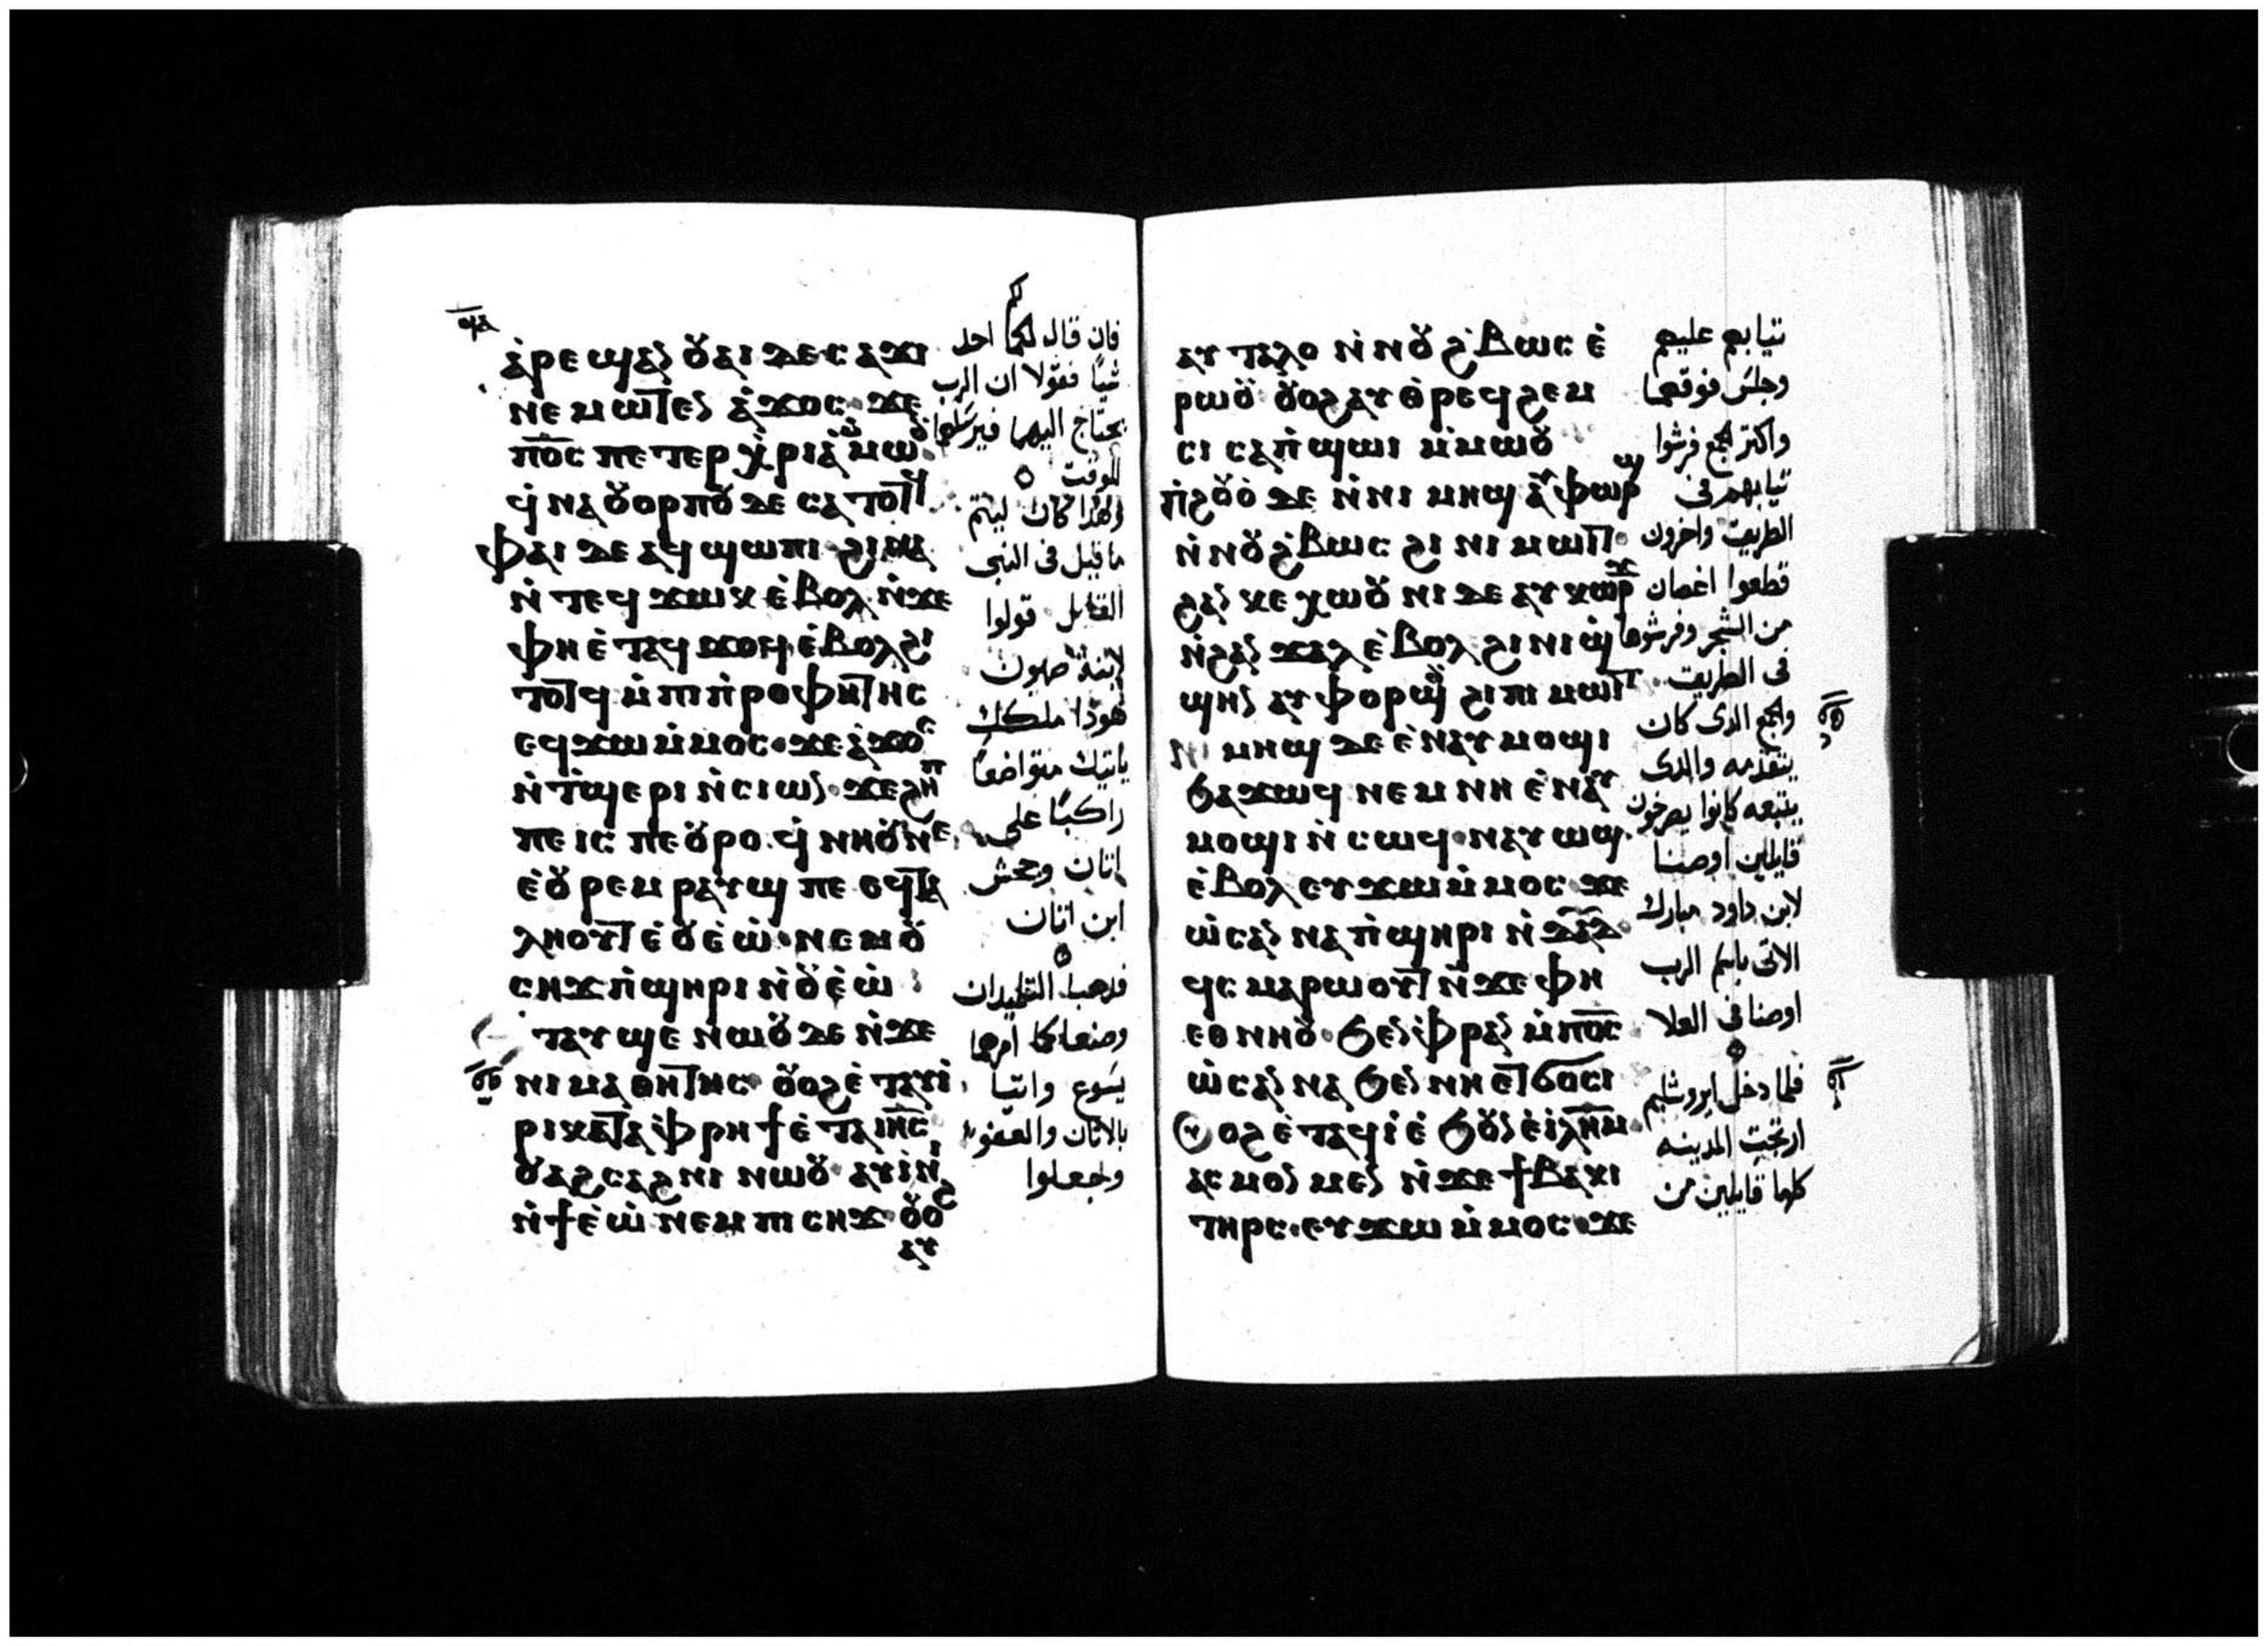 ⲁ̀ⲣⲉϣⲁⲛ ⲟⲩⲁⲓ ⲇⲉ ⲥⲁϫⲓ
ⲛⲉⲙⲱⲧⲉⲛ ⲁ̀ϫⲟⲥ ϫⲉ
ⲡ̅ⲟ̅ⲥ̅ ⲡⲉⲧⲉⲣⲭ̀ⲣⲓⲁ̀ ⲙ̀ⲙⲱⲟⲩ
ϥ̀ⲛⲁⲟⲩⲟⲣⲡⲟⲩ ⲇⲉ ⲥⲁⲧⲟⲧϥ
ⲫⲁⲓ ⲇⲉ ⲁϥϣⲱⲡⲓ ϩⲓⲛⲁ
ⲛ̀ⲧⲉϥϫⲱⲕ ⲉ̀ⲃⲟⲗ ⲛ̀ϫⲉ
ⲫⲏ ⲉ̀ⲧⲁϥϫⲟϥ ⲉ̀ⲃⲟⲗϩⲓ
ⲧⲟⲧϥ ⲙ̀ⲡⲓⲡ̀ⲣⲟⲫⲏⲧⲏⲥ
ⲉϥϫⲱ ⲙ̀ⲙⲟⲥ ϫⲉ ⲁ̀ϫⲟⲥ
ⲛ̀ⲧ̀ϣⲉⲣⲓ ⲛ̀ⲥⲓⲱⲛ ϫⲉ ϩⲏⲡ
ⲡⲉ ⲓⲥ ⲡⲉⲟⲩⲣⲟ ϥ̀ⲛⲏⲟⲩ ⲛⲉ
ⲉ̀ⲟⲩⲣⲉⲙⲣⲁⲩϣ ⲡⲉ ⲉϥⲧⲁ
ⲗⲏⲟⲩⲧ ⲉ̀ⲟⲩⲉ̀ⲱ̀ ⲛⲉⲙ ⲟⲩ
ⲥⲏϫ ⲡ̀ϣⲏⲣⲓ ⲛ̀ⲟⲩⲉ̀ⲱ̀
ⲧⲁⲩϣⲉ ⲛⲱⲟⲩ ⲇⲉ ⲛ̀ϫⲉ
ⲛⲓⲙⲁⲑⲏⲧⲏⲥ ⲟⲩⲟϩ ⲉ̀ⲧⲁⲩⲓ̀
ⲣⲓ ⲕⲁⲧⲁ ⲫ̀ⲣⲏϯ ⲉ̀ⲧⲁ ⲓⲏ̅ⲥ̅
ⲟⲩⲁϩⲥⲁϩⲛⲓ ⲛⲱⲟⲩ ⲁⲩⲓ̀ⲛⲓ
ⲛ̀ϯⲉ̀ⲱ̀ ⲛⲉⲙ ⲡⲓⲥⲏϫ ⲟⲩⲟϩ
ⲁⲩ
فان قال لكما احد
شيا فقولا ان الرب
يحتاج اليهما فيرسلهما
للوقت
وهذا كان ليتم
ما قيل فى النبى
القايل قولوا
لابنة صهيون
هوذا ملكك
ياتيك متواضعا
راكبا على
اتان وجحش
ابن اتان
فذهبا التلميذان
وصنعا كما امرهما
يسوع واتيا
بالاتان والعفو
وجعلوا
ⲁⲩⲧⲁⲗⲟ ⲛ̀ⲛⲟⲩϩ̀ⲃⲱⲥ ⲉ̀
ⲣⲱⲟⲩ ⲟⲩⲟϩ ⲁⲩⲑ̀ⲣⲉϥϩⲉⲙ
ⲥⲓ ⲥⲁⲡ̀ϣⲱⲓ ⲙ̀ⲙⲱⲟⲩ
ⲡ̀ϩⲟⲩⲟ̀ ⲇⲉ ⲛ̀ⲛⲓⲙⲏϣ ⲁⲩⲫⲱⲣϣ
ⲛ̀ⲛⲟⲩϩ̀ⲃⲱⲥ ϩⲓ ⲛⲓⲙⲱⲓⲧ
ϩⲁⲛⲕⲉⲭⲱⲟⲩⲛⲓ ⲇⲉ ⲁⲩⲕⲱⲣϫ
ⲛ̀ϩⲁⲛϫⲁⲗ ⲉ̀ⲃⲟⲗ ϩⲓ ⲛⲓϣ̀
ϣⲏⲛ ⲁⲩⲫⲟⲣϣⲟⲩ ϩⲓ ⲡⲓⲙⲱⲓⲧ
ⲛⲓⲙⲏϣ ⲇⲉ ⲉ̀ⲛⲁⲩⲙⲟϣⲓ
ϧⲁϫⲱϥ ⲛⲉⲙ ⲛⲏ ⲉ̀ⲛⲁⲩ
ⲙⲟϣⲓ ⲛ̀ⲥⲱϥ ⲛⲁⲩⲱϣ
ⲉ̀ⲃⲟⲗ ⲉⲩϫⲱ ⲙ̀ⲙⲟⲥ ϫⲉ
ⲱ̀ⲥⲁⲛⲛⲁ ⲡ̀ϣⲏⲣⲓ ⲛ̀ⲇⲁⲇ
ϥⲥ̀ⲙⲁⲣⲱⲟⲩⲧ ⲛ̀ϫⲉ ⲫⲏ
ⲉⲑⲛⲏⲟⲩ ϧⲉⲛ ⲫ̀ⲣⲁⲛ ⲙ̀ⲡ̅ⲟ̅ⲥ̅
ⲱ̀ⲥⲁⲛⲛⲁ ϧⲉⲛ ⲛⲏ ⲉⲧϭⲟⲥⲓ
ⲟⲩⲟϩ ⲉ̀ⲧⲁϥⲓ̀ ⲉ̀ϧⲟⲩⲛ ⲉ̀ⲓ̀ⲗ̅ⲏ̅ⲙ̅
ⲁⲥⲙⲟⲛⲙⲉⲛ ⲛ̀ϫⲉ ϯⲃⲁⲕⲓ
ⲧⲏⲣⲥ ⲉⲩϫⲱ ⲙ̀ⲙⲟⲥ ϫⲉ
ثيابهم عليهم
وجلس فوقهما
واكثر الجمع فرشوا
ثيابهم فى
الطريق واخرون
قطعوا اغصان
من الشجر وفرشوها
فى الطريق
والجمع الذى كان
يتقدمه والذى
يتبعه كانوا يصرخون
قايلين اوصنا
لابن داود مبارك
الاتى باسم الرب
اوصنا فى العلا
فلما دخل ايروشليم
ارتجت المدينه
كلها قايلين من